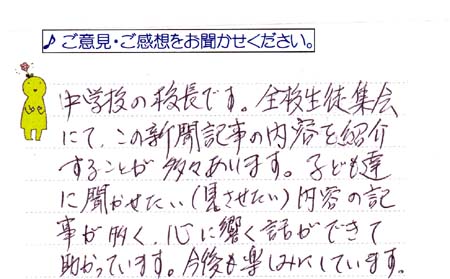 ♪ご意見・ご感想をお聞かせください。
中学校の校長です。全校生徒集会
にて、この新聞記事の内容を紹介
することが多々あります。子ども達
に聞かせたい(見させたい)内容の記
事が多く、心に響く話ができて
助かっています。今後も楽しみにしています。